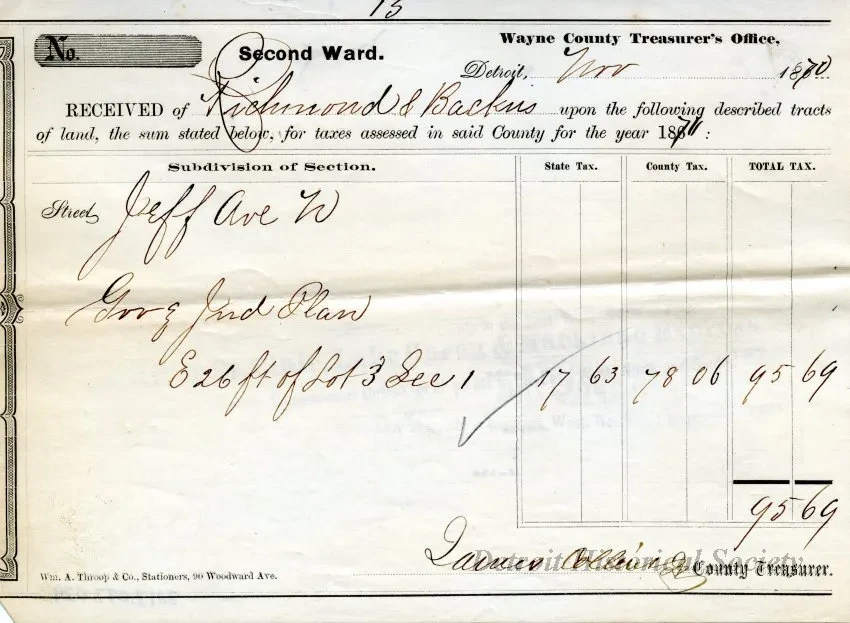 13
No.
Second Ward.
Wayne County Treasurer's Office,
Detroit, Nov 1870
RECEIVED of Richmond & Backus upon the following described tracts
of land, the sum stated below, for taxes assessed in said County for the year 1870:
Subdivision of Section. State Tax. County Tax. TOTAL TAX.
Street, Jeff Ave N
Gov & Jud Plan
E 26 ft of Lot 3 Sec 1 17 63 78 06 95 69
95 69
James Collins County Treasurer.
Detroit Historical Society
Wm. A. Throop & Co., Stationers, 90 Woodward Ave.